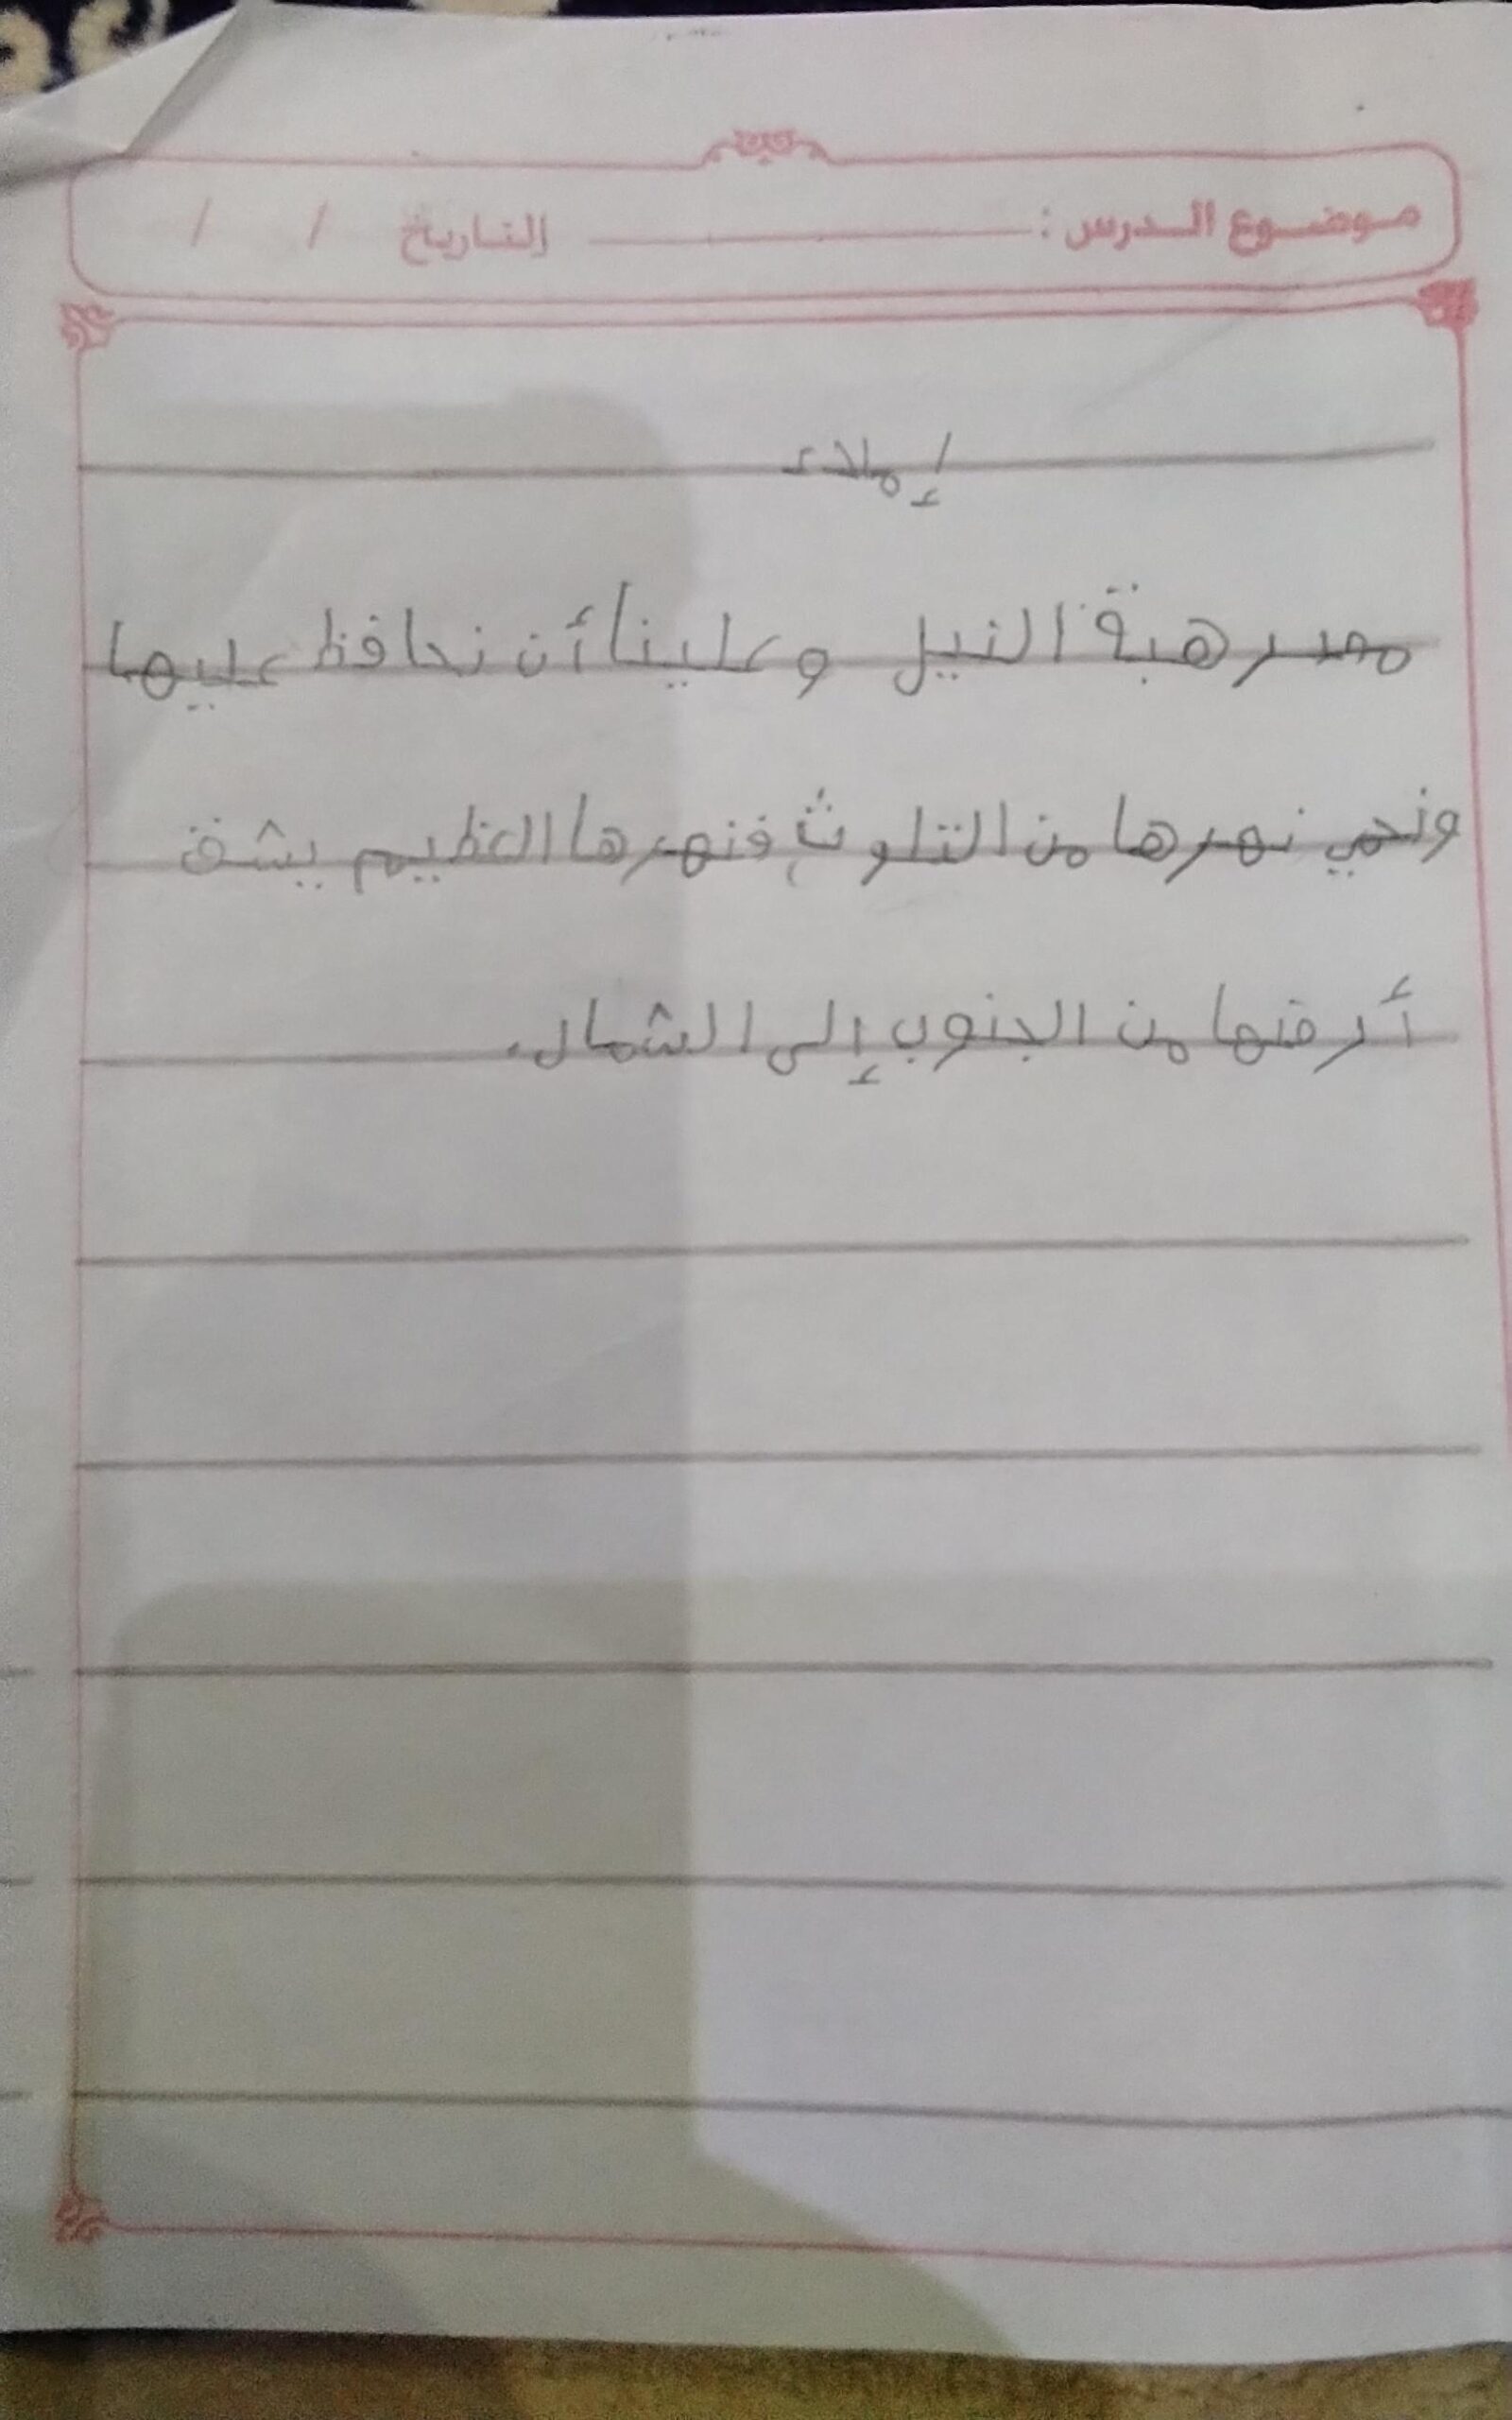 موضوع الدرس : التاريخ / /
إملاء
مصر هبة النيل وعلينا أن نحافظ عليها
ونحمي نهرها من التلوث فنهرها العظيم يشق
أرضها من الجنوب إلى الشمال.